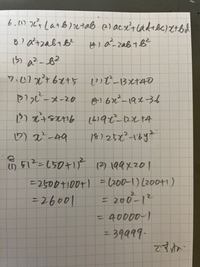 6.(1) x²+(a+b)x+ab (2) acx²+(ad+bc)x+bd
(3) a²+2ab+b² (4) a²-2ab+b²
(5) a²-b²
7.(1) x²+6x+5 (2) x²-13x+40
(3) x²-x-20 (4) 6x²-19x-36
(5) x²+8x+16 (6) 9x²-12x+4
(7) x²-49 (8) 25x²-16y²
8
(1) 51²=(50+1)² (2) 199×201
=2500+100+1 =(200-1)(200+1)
=26001 =200²-1²
=40000-1
=39999.